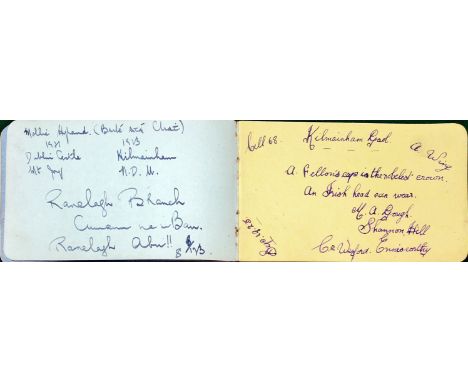 Mollie Hyland. (Baile átá Cliat)
1921 1923
Dublin Castle Kilmainham
Mt Joy N. D. U.
Ranelagh Branch
Cumann na mBan.
Ranelagh Abu!!
Cell 68. Kilmainham Gaol A Wing
A Fellon's cap is the noblest crown.
An Irish head can wear.
M. A. Gough.
Shannon Hill
Co Wexford. Enniscorthy
1923